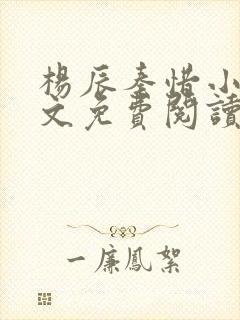 楊辰秦惜小
文免費閱讀
一廉鳳絮